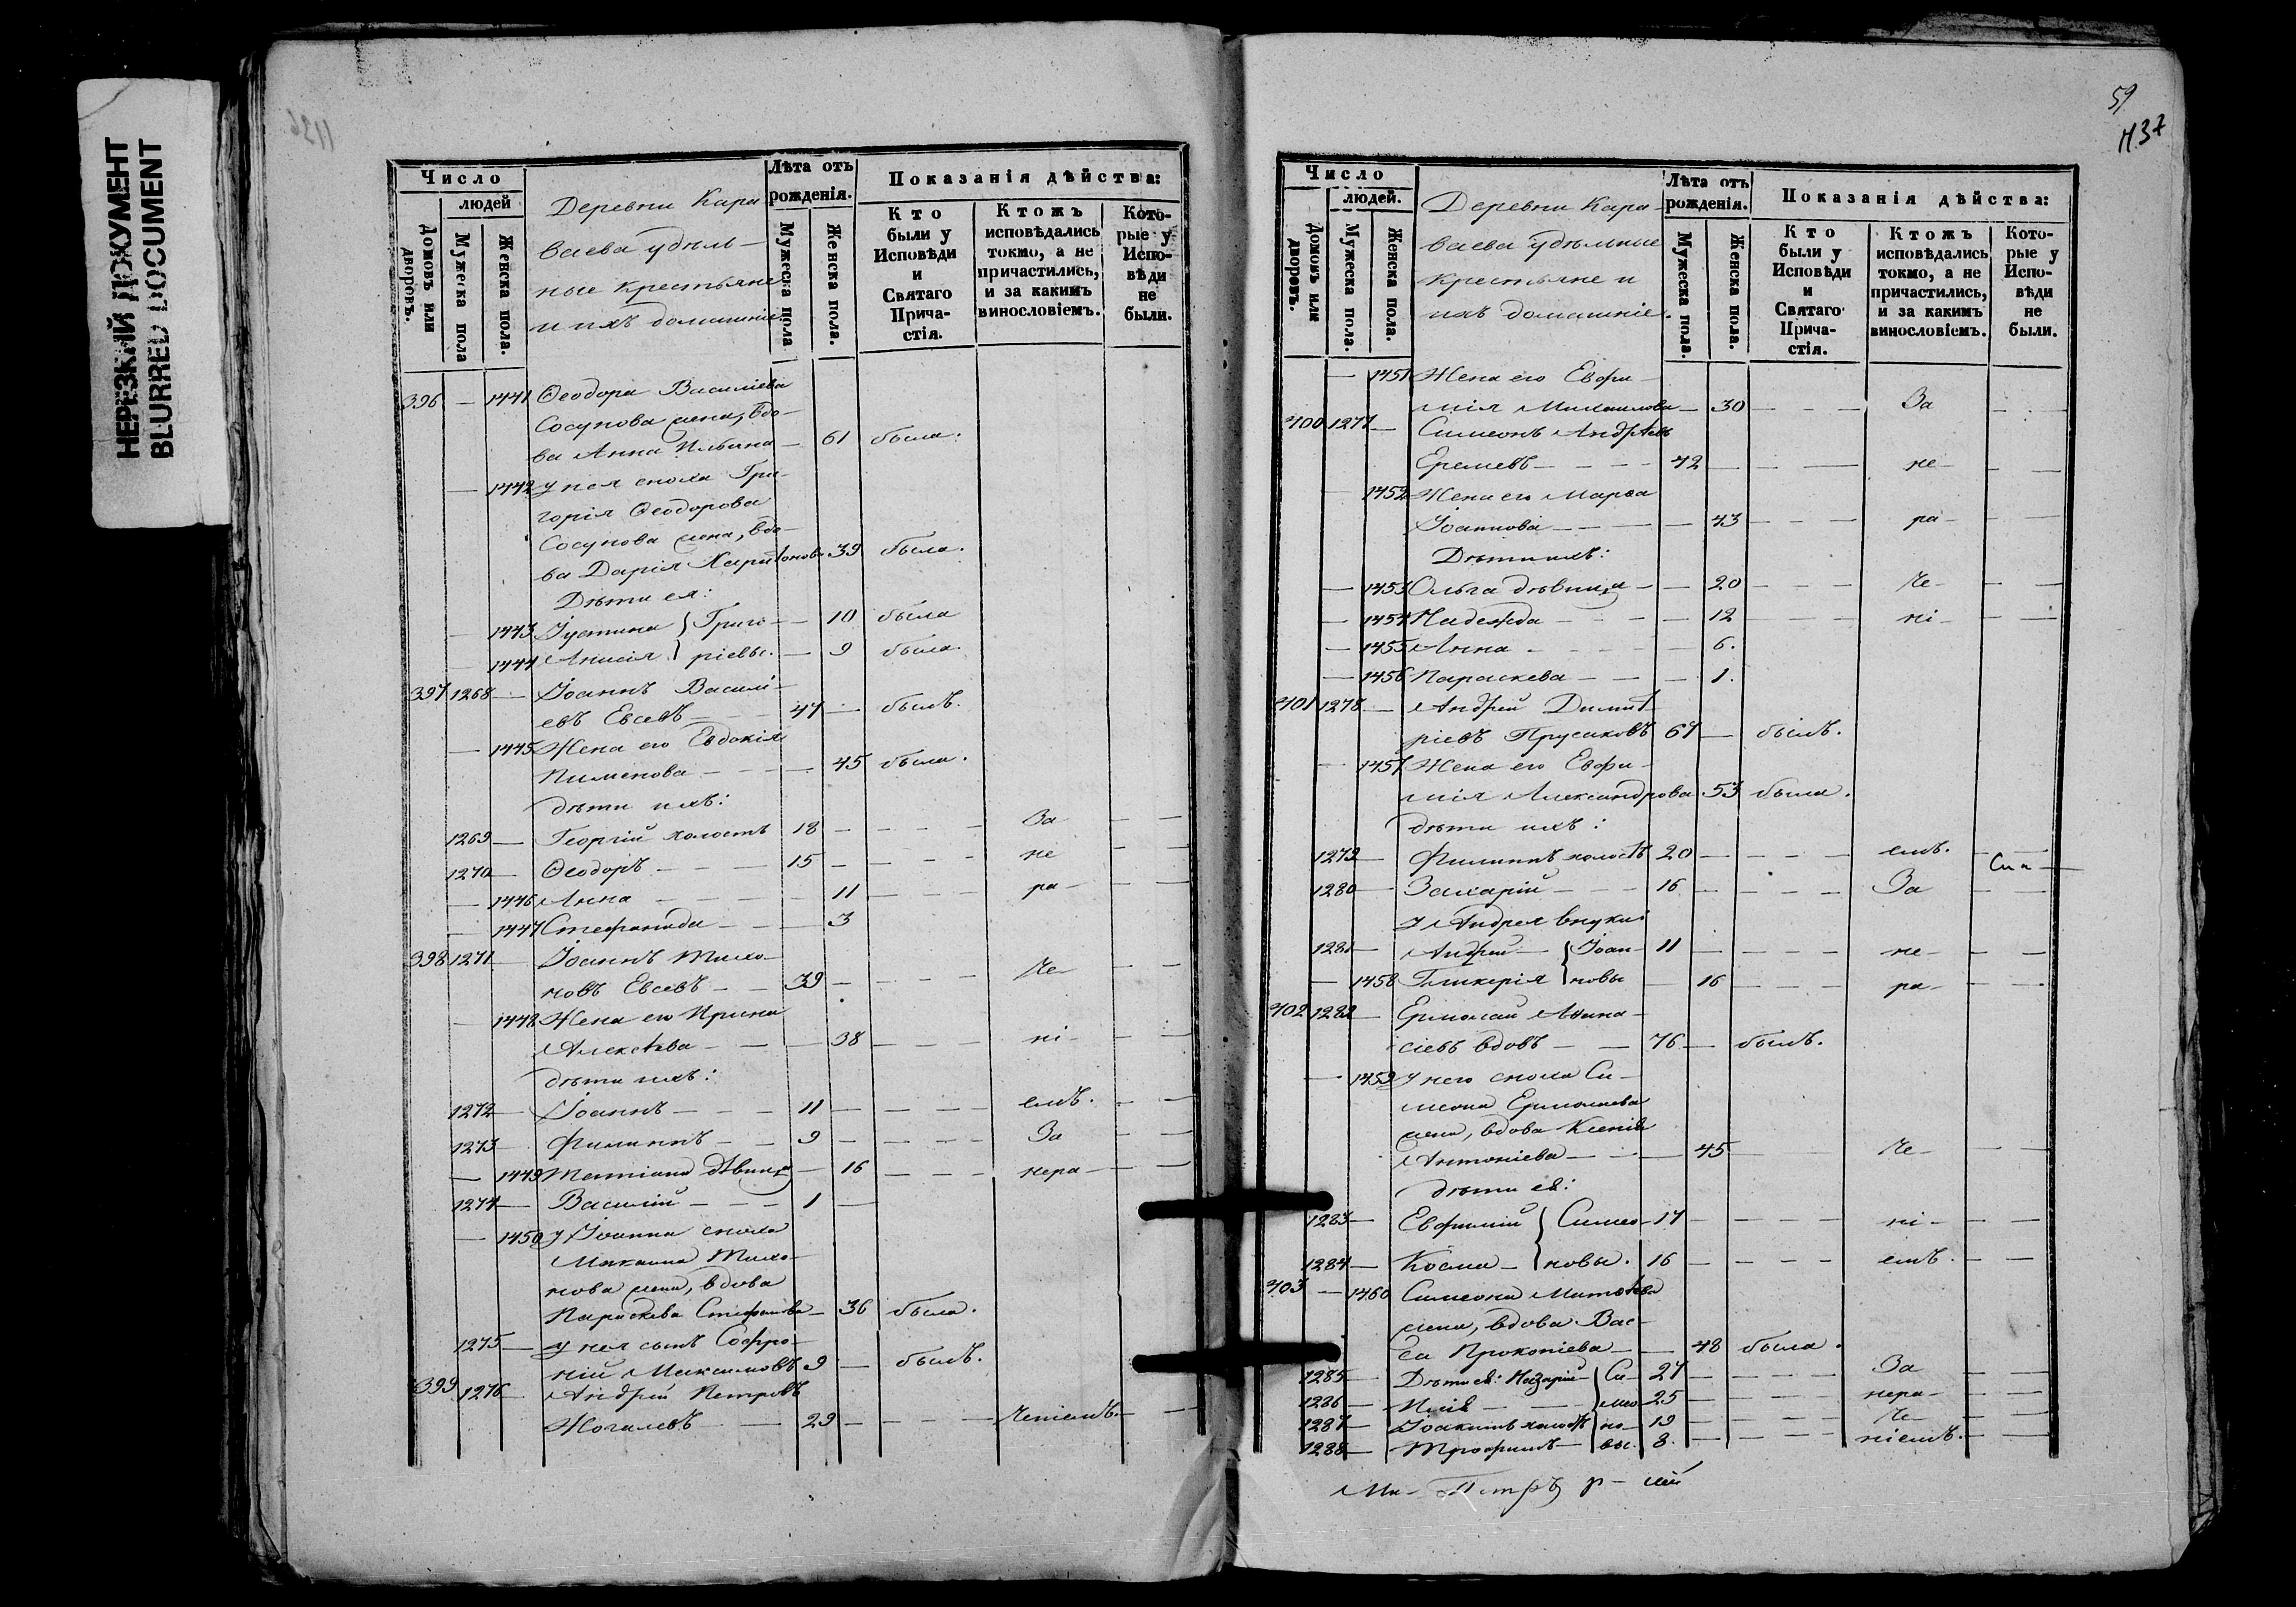 НЕРЕЗКИЙ ДОКУМЕНТ
BLURRED DOCUMENT
1136
Число
людей
Домовъ или дворовъ.
Мужеска пола
Женска пола.
Деревни Кара-
ваева удѣль-
ные крестьяне
и ихъ домашніе.
Лѣта отъ рожденія.
Мужеска пола
Женска пола.
Показанія дѣйства:
Кто были у Исповѣди и Святаго Прича-стія.
Ктожъ исповѣдались токмо, а не причастились, и за какимъ винословіемъ.
Кото-рые у Испо-вѣди не были.
396 — 1441 Ѳеодора Василіева
Сосунова жена, вдо-
ва Анна Ильина — 61 была.
— 1442 у нея сноха Гри-
горія Ѳеодорова
Сосунова жена, вдо-
ва Дарія Харитонова 39 была.
Дѣти ея:
— 1443 Іустина } Григо- — 10 была
— 1444 Анисія } ріевы. — 9 была.
397 1268 — Іоаннъ Василі-
евъ Евсевъ — 47 — былъ.
— 1445 Жена его Евдокія
Пименова — — 45 была.
дѣти ихъ:
1269 — Георгій холостъ 18 — — — За — —
1270 — Ѳеодоръ — — — 15 — — — — не — —
— 1446 Анна — — — — 11 — — — ра — —
— 1447 Стефанида — — — 3
398 1271 — Іоаннъ Тихо-
новъ Евсевъ — — 39 — — — — Че — —
— 1448 Жена его Ирина
Алексѣева — — — 38 — — — ні — —
дѣти ихъ:
1272 — Іоаннъ — — — 11 — — — — емъ. — —
1273 — Филиппъ — — 9 — — — — За — —
— 1449 Татіана дѣвица — 16 — — — нера — —
1274 — Василій — — — 1 —
— 1450 у Іоанна сноха
Максима Тихо-
нова жена, вдова
Параскева Стефанова — 36 была.
1275 — у нея сынъ Софро-
ній Максимовъ 9 — былъ.
399 1276 — Андрей Петровъ
Жогалевъ — — 29 — — — — Ченіемъ. — —
59
1137
Число
людей.
Домовъ или дворовъ.
Мужеска пола.
Женска пола.
Деревни Кара-
ваева удѣльные
крестьяне и
ихъ домашніе.
Лѣта отъ рожденія.
Мужеска пола.
Женска пола.
Показанія дѣйства:
Кто были у Исповѣди и Святаго Прича-стія.
Ктожъ исповѣдались токмо, а не причастились, и за какимъ винословіемъ.
Кото-рые у Испо-вѣди не были.
— 1451 Жена его Евфи-
мія Михаилова — 30 — — — За — —
400 1277 — Симеонъ Андреевъ
Еремевъ — — — 42 — — — не — —
— 1452 Жена его Марѳа
Іоаннова — — — — 43 — — — ра — —
Дѣти ихъ:
— 1453 Ольга дѣвица — — 20 — — — Че — —
— 1454 Надежда — — — — 12 — — — ні — —
— 1455 Анна — — — — — 6.
— 1456 Параскева — — — 1.
401 1278 — Андрей Димит-
ріевъ Прусаковъ 67 — былъ.
— 1457 Жена его Евфи-
мія Александрова 53 была.
дѣти ихъ:
1279 — Филиппъ холостъ 20 — — — — емъ. — —
1280 — Захарій — — — 16 — — — — За — —
у Андрея внуки:
1281 — Андрей — { Іоан- 11 — — — — не — —
— 1458 Гликерія { новы — 16 — — — ра — —
402 1282 — Ермолай Аѳана-
сіевъ вдовъ — — 76 — былъ.
— 1459 у него сноха Си-
меона Ермолаева
жена, вдова Ксенія
Антоніева — — — 45 — — Че — —
дѣти ея:
1283 — Евфимій { Симео- 17 — — — — ні — —
1284 — Косма — { новы. 16 — — — — емъ. — —
403 — 1460 Симеона Матѳеева
жена, вдова Вас-
са Прокопіева — — 48 была.
1285 — Дѣти ея: Назарій { Си- 27 — — — — За — —
1286 — Илія — — { мео- 25 — — — — нера — —
1287 — Іоакимъ холостъ { но- 19 — — — — Че — —
1288 — Трофимъ — { вы. 8. — — — — ніемъ. — —